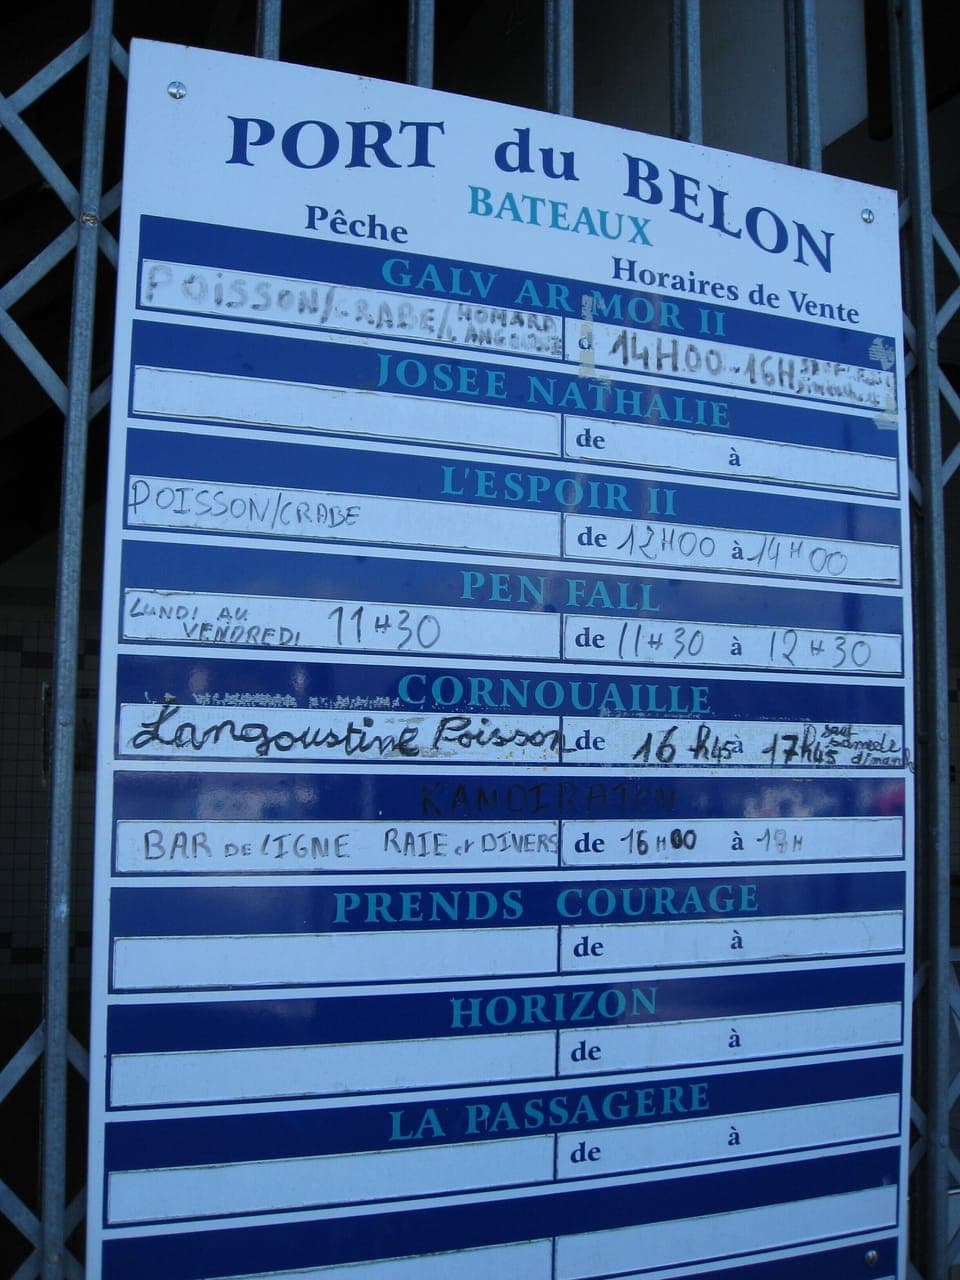 PORT du BELON
BATEAUX
Pêche Horaires de Vente
GALV AR MOR II
POISSON/CRABE/HOMARD
LANGOUSTE
d 14H00-16H
JOSEE NATHALIE
de à
L'ESPOIR II
POISSON/CRABE de 12H00 à 14H00
PEN FALL
LUNDI AU
VENDREDI 11H30 de 11H30 à 12H30
CORNOUAILLE
Langoustine Poisson de 16h45 à 17h45 sauf
samedi
dimanche
BAR DE LIGNE RAIE et DIVERS de 16H00 à 18H
PRENDS COURAGE
de à
HORIZON
de à
LA PASSAGERE
de à